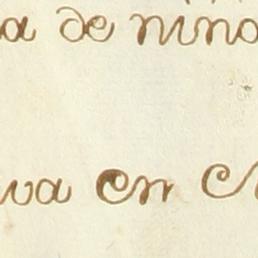 a de nino
va en c